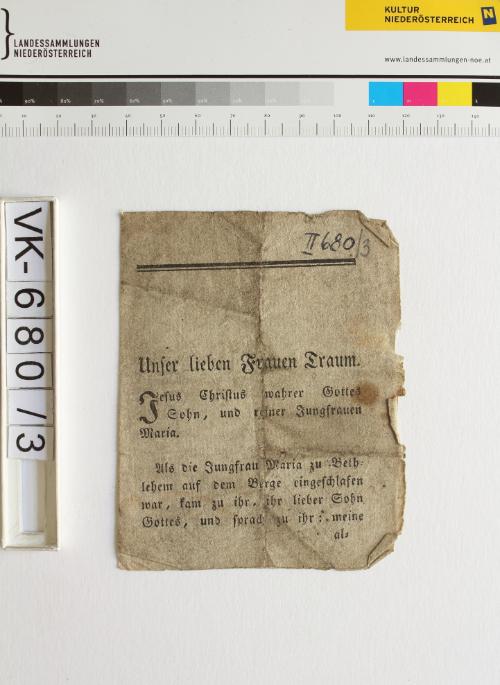 LANDESSAMMLUNGEN
NIEDERÖSTERREICH
KULTUR
NIEDERÖSTERREICH
N
www.landessammlungen-noe.at
VK-680/3
II 680/3
Unſer lieben Frauen Traum.
Jeſus Chriſtus wahrer Gottes
Sohn, und reiner Jungfrauen
Maria.
Als die Jungfrau Maria zu Beth-
lehem auf dem Berge eingeſchlafen
war, kam zu ihr, ihr lieber Sohn
Gottes, und ſprach zu ihr: meine
al-